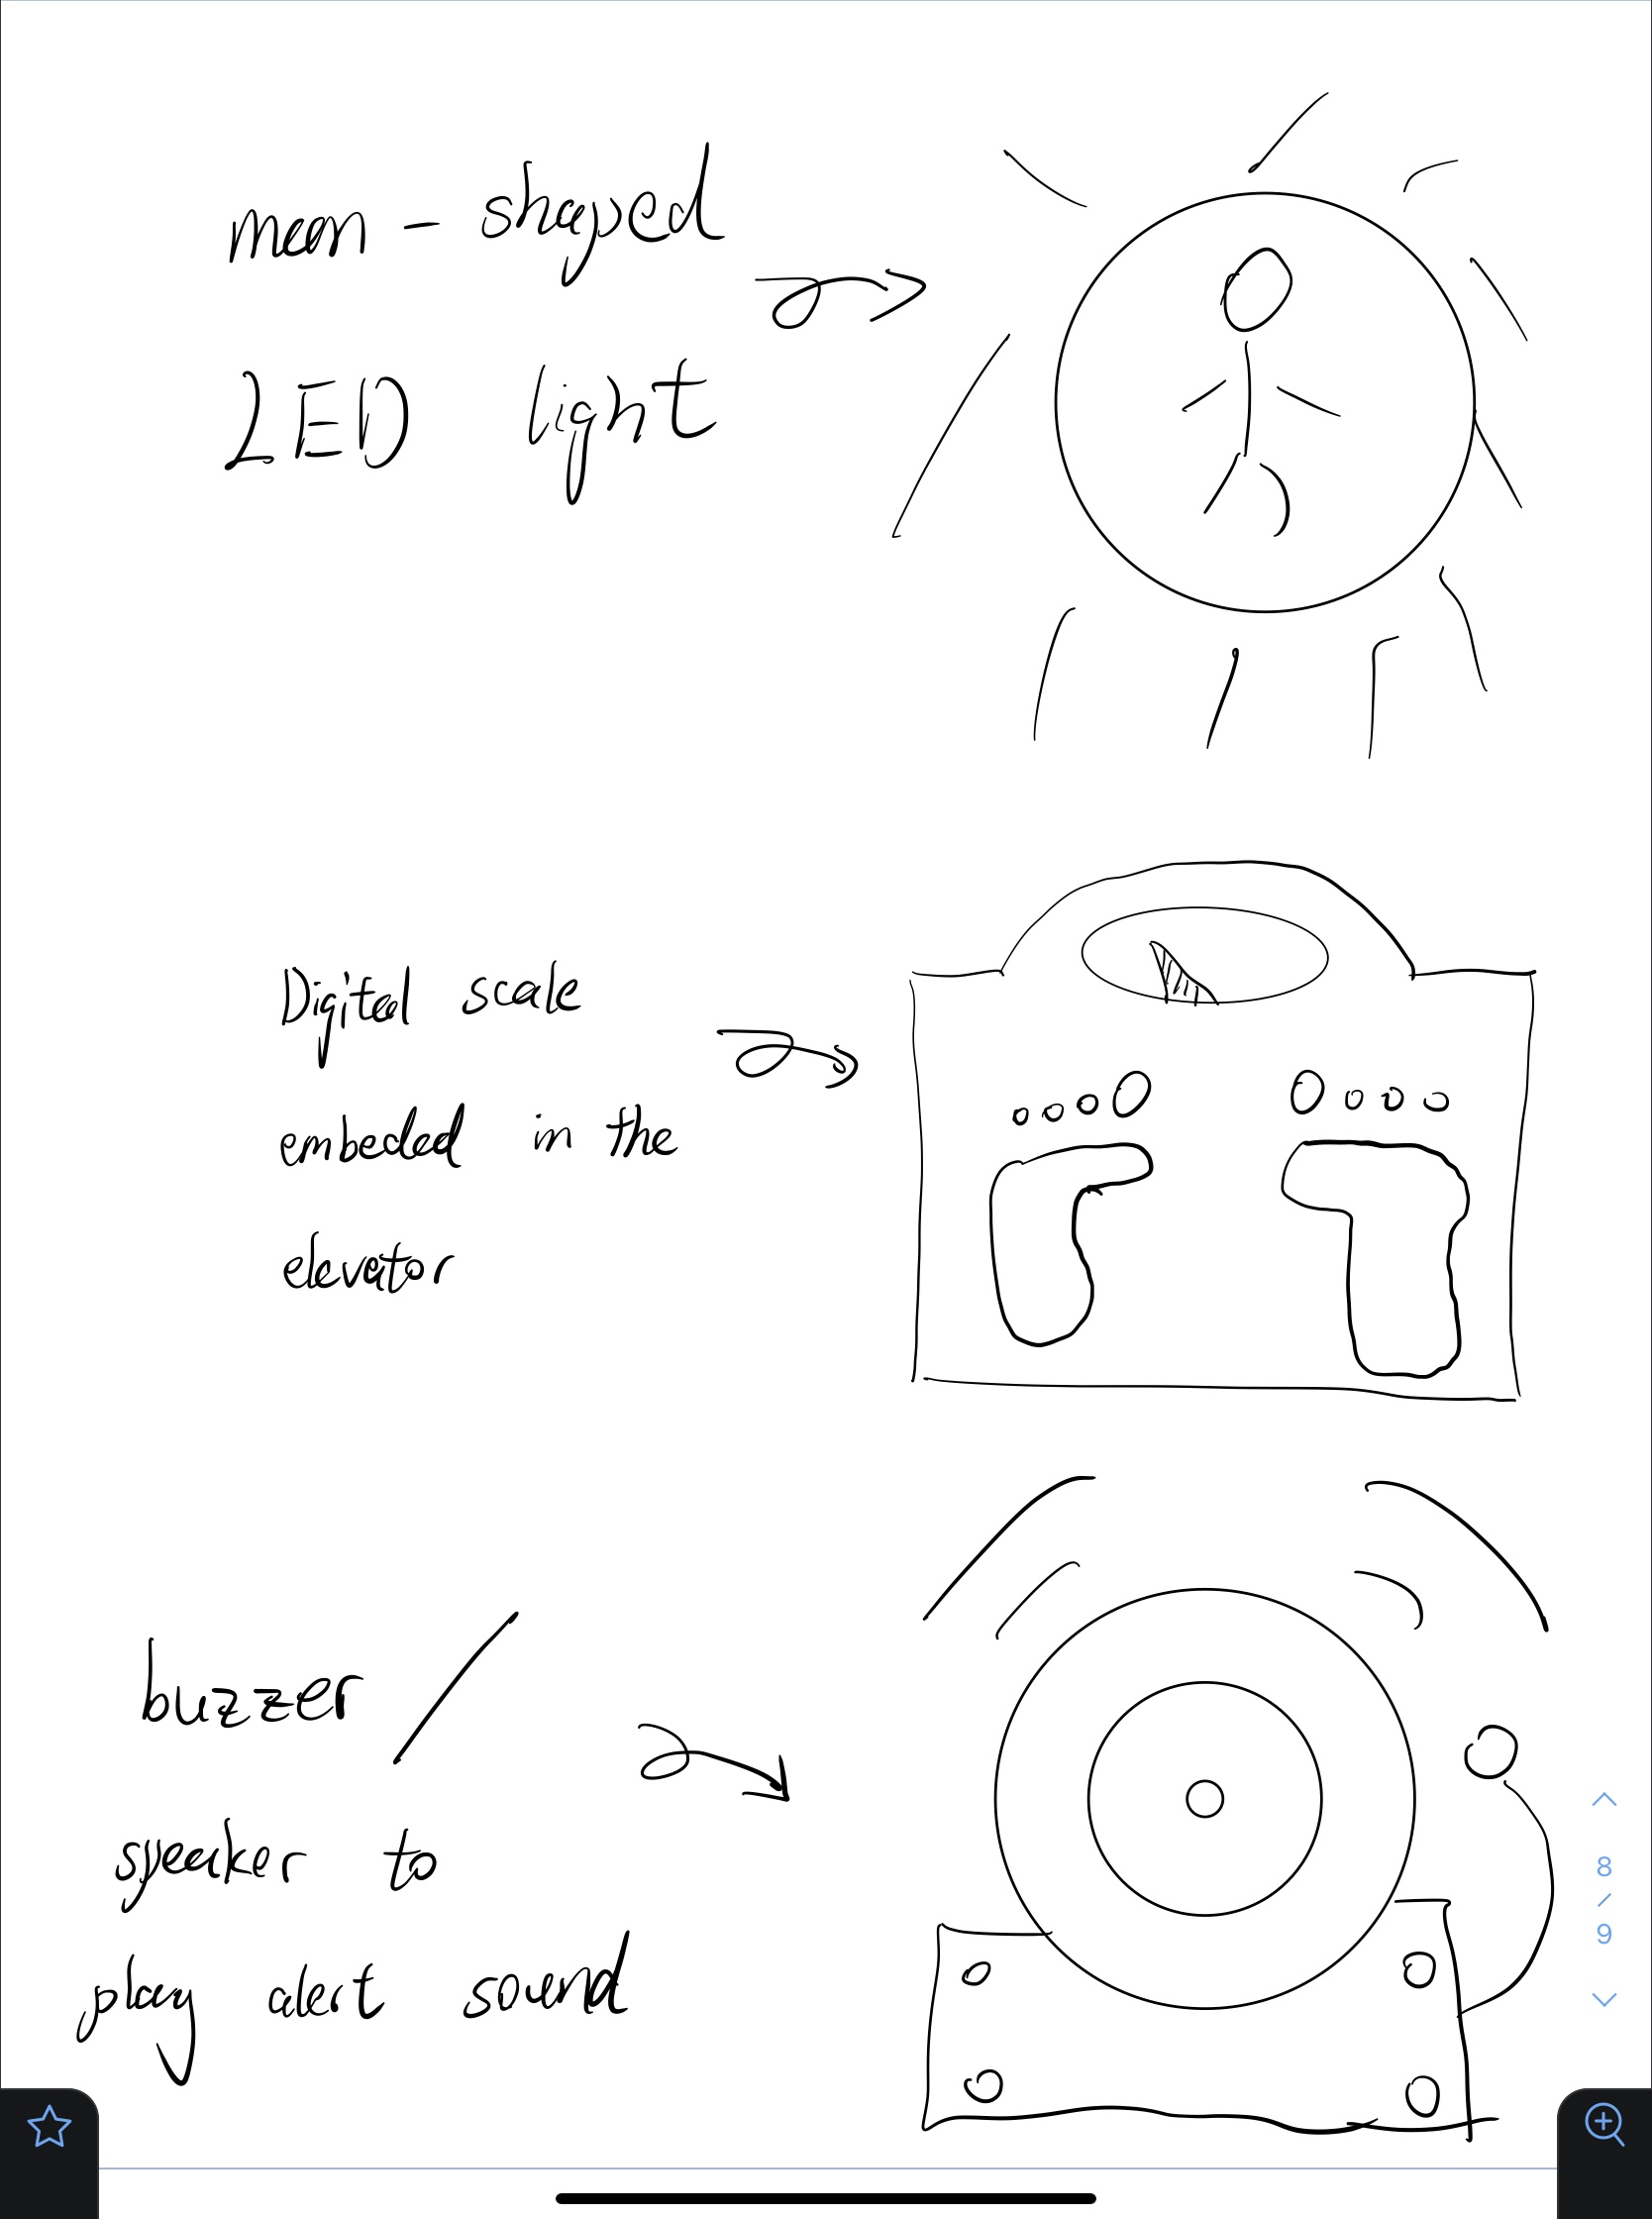 man - shaped
LED light
Digital scale
embeded in the
elevator
buzzer /
speaker to
play alert sound
8
/
9